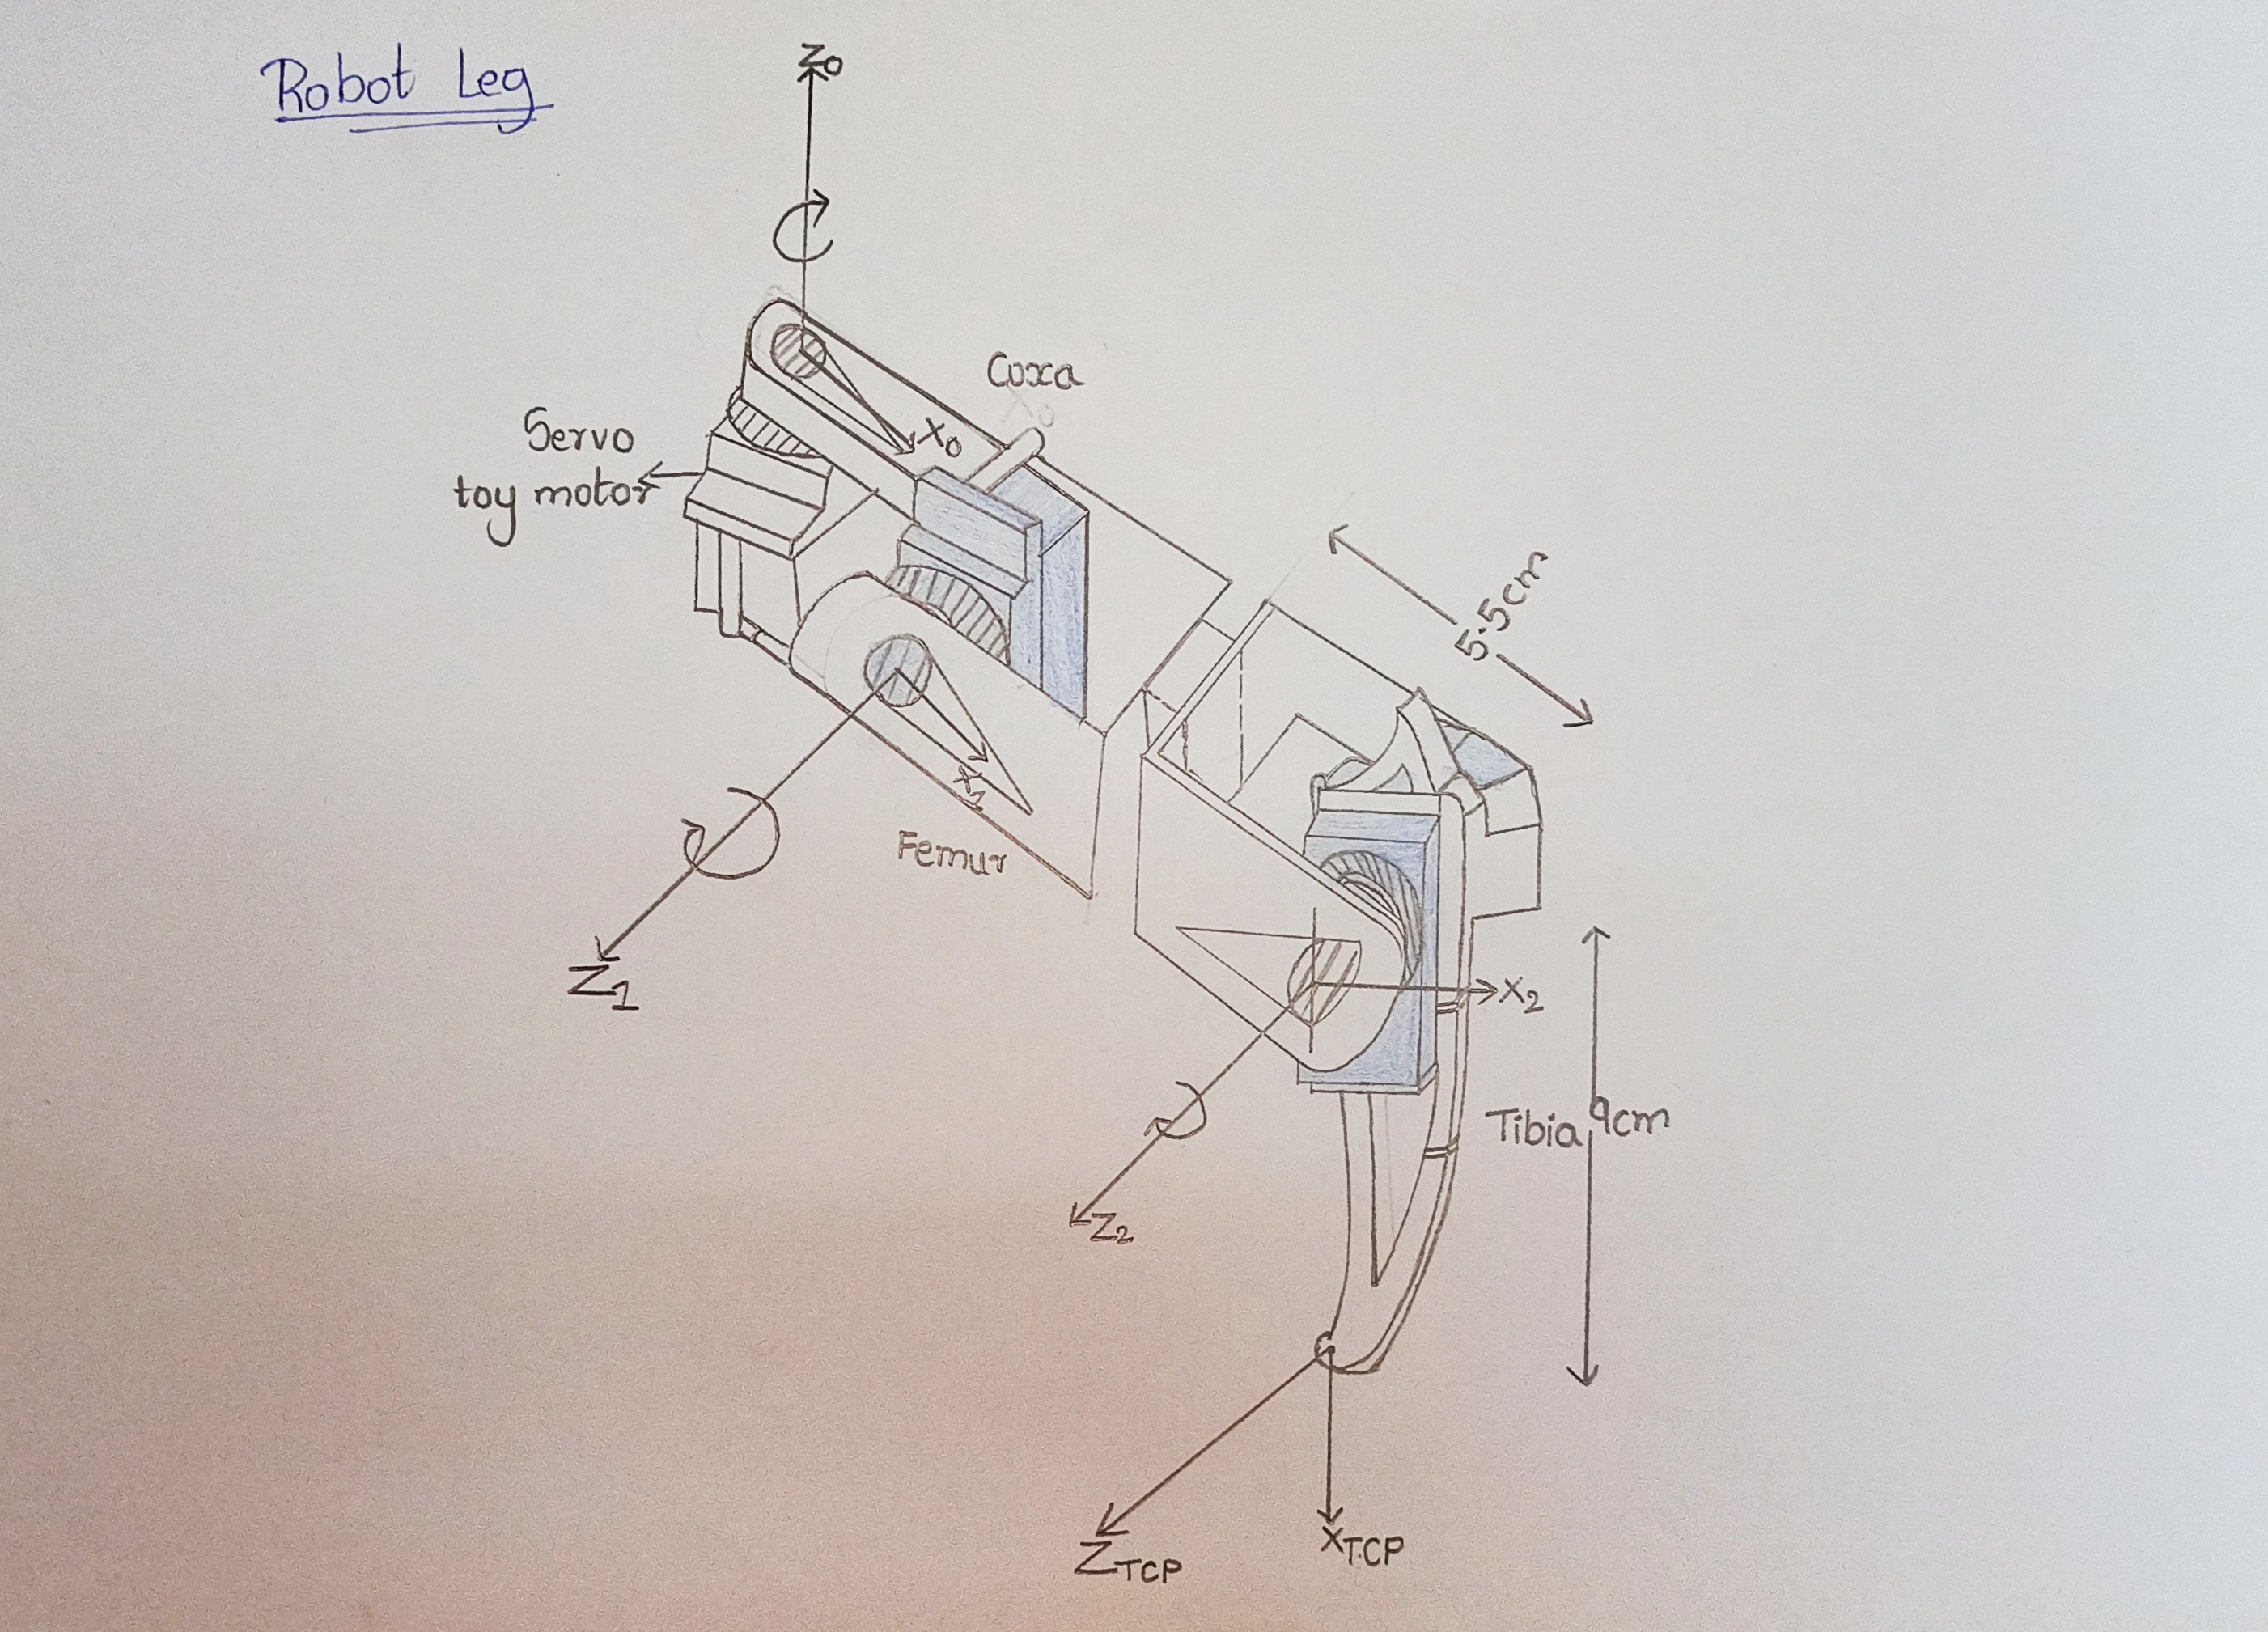 Robot Leg
Z0
Coxa
X0
Servo
toy motor
5.5cm
X1
Femur
Z1
X2
Tibia 9cm
Z2
XTCP
ZTCP